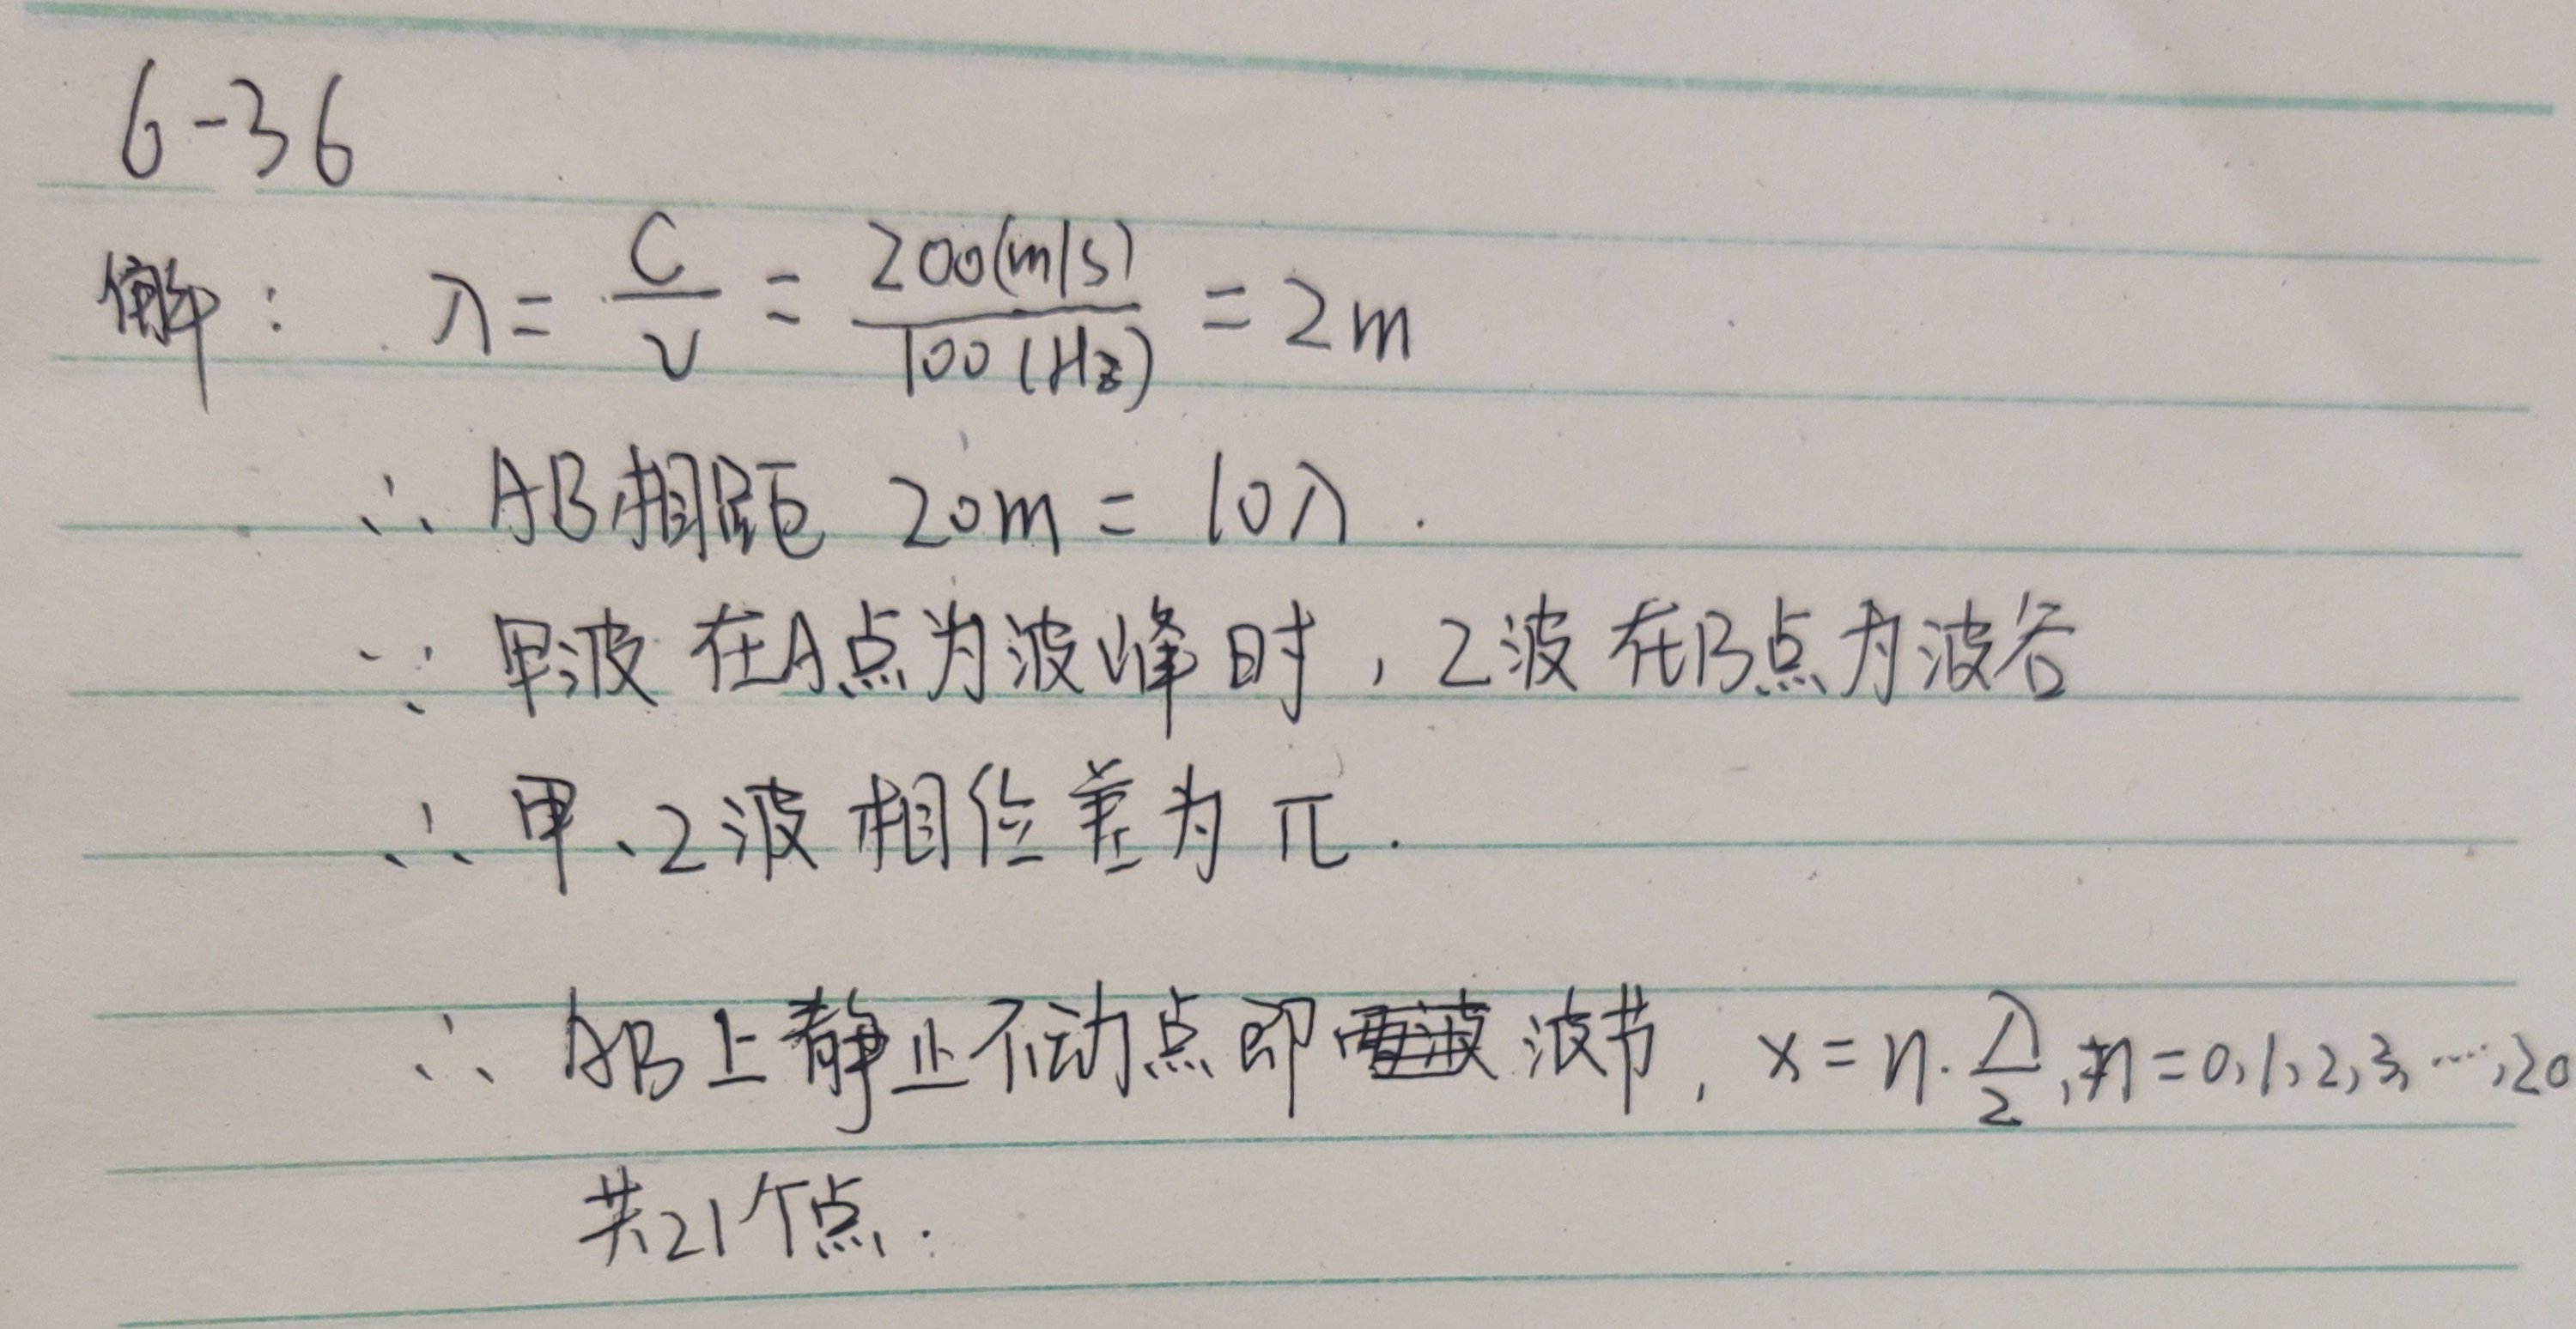 6-36
解： λ = C/ν = 200(m/s)/100(Hz) = 2m
∴ AB相距 20m = 10λ.
∵ 甲波在A点为波峰时，乙波在B点为波谷
∴ 甲、乙波相位差为π.
∴ AB上静止不动点即波节, x = n·λ/2, n = 0,1,2,3,…,20
共21个点.